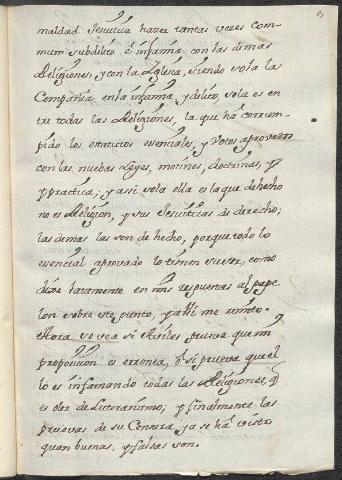 maldad Jesuitica haver tantas veces com-
mun su delito è infamia con las demas
Religiones, y con la Iglesia, siendo sola la
Compañia en la infamia, y delito, sola es en
tre todas las Religiones, la que há corrom-
pido los estatutos essenciales, y Votos aprovados
con las nuebas Leyes, motinos, doctrinas, y
practica; y assi sola ella es la que de hecho
no es Religion, y sus Jesuiticas de derecho;
las demas las son de hecho, porque todo lo
essencial aprovado lo tienen su ser, como
dixe latamente en mis respuestas al pape
lon sobre este punto, y alli me remito.
Aora se vea si Aviles prueva que mi
proposicion es erronea, ò si prueva que el
lo es infamando todas las Religiones, q̃
es obra de Luteranismo; y finalmente las
pruevas de su Censura ya se há visto
quan buenas, y falsas son.